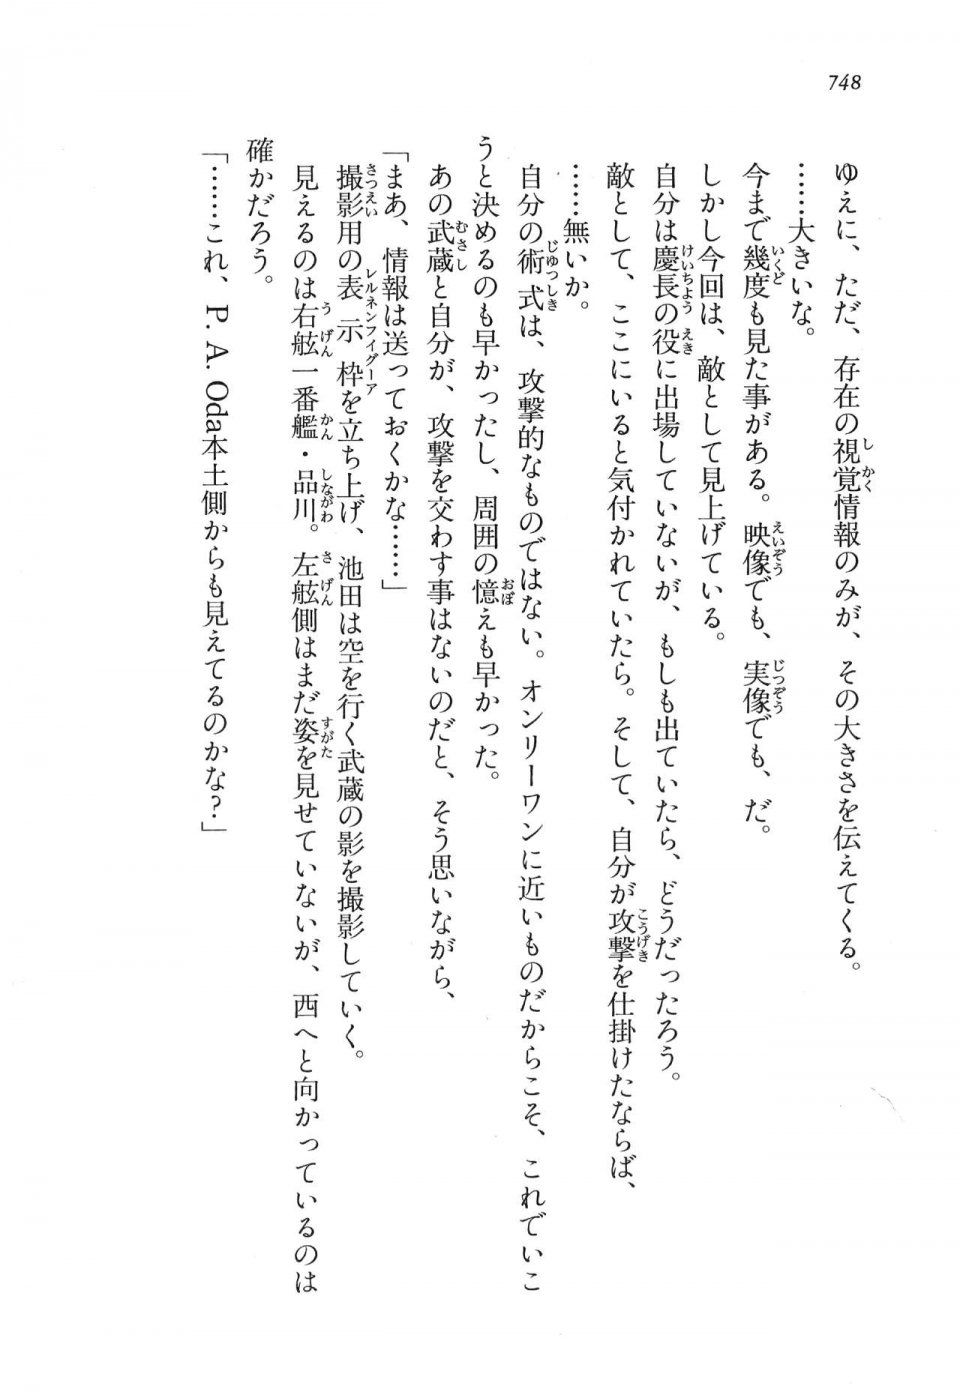 748
ゆえに、ただ、存在の視覚情報のみが、その大きさを伝えてくる。
……大きいな。
今まで幾度も見た事がある。映像でも、実像でも、だ。
しかし今回は、敵として見上げている。
自分は慶長の役に出場していないが、もしも出ていたら、どうだったろう。
敵として、ここにいると気付かれていたら。そして、自分が攻撃を仕掛けたならば、
……無いか。
自分の術式は、攻撃的なものではない。オンリーワンに近いものだからこそ、これでいこ
うと決めるのも早かったし、周囲の憶えも早かった。
あの武蔵と自分が、攻撃を交わす事はないのだと、そう思いながら、
「まあ、情報は送っておくかな……」
撮影用の表示枠を立ち上げ、池田は空を行く武蔵の影を撮影していく。
見えるのは右舷一番艦・品川。左舷側はまだ姿を見せていないが、西へと向かっているのは
確かだろう。
「……これ、P.A.Oda本土側からも見えてるのかな?」